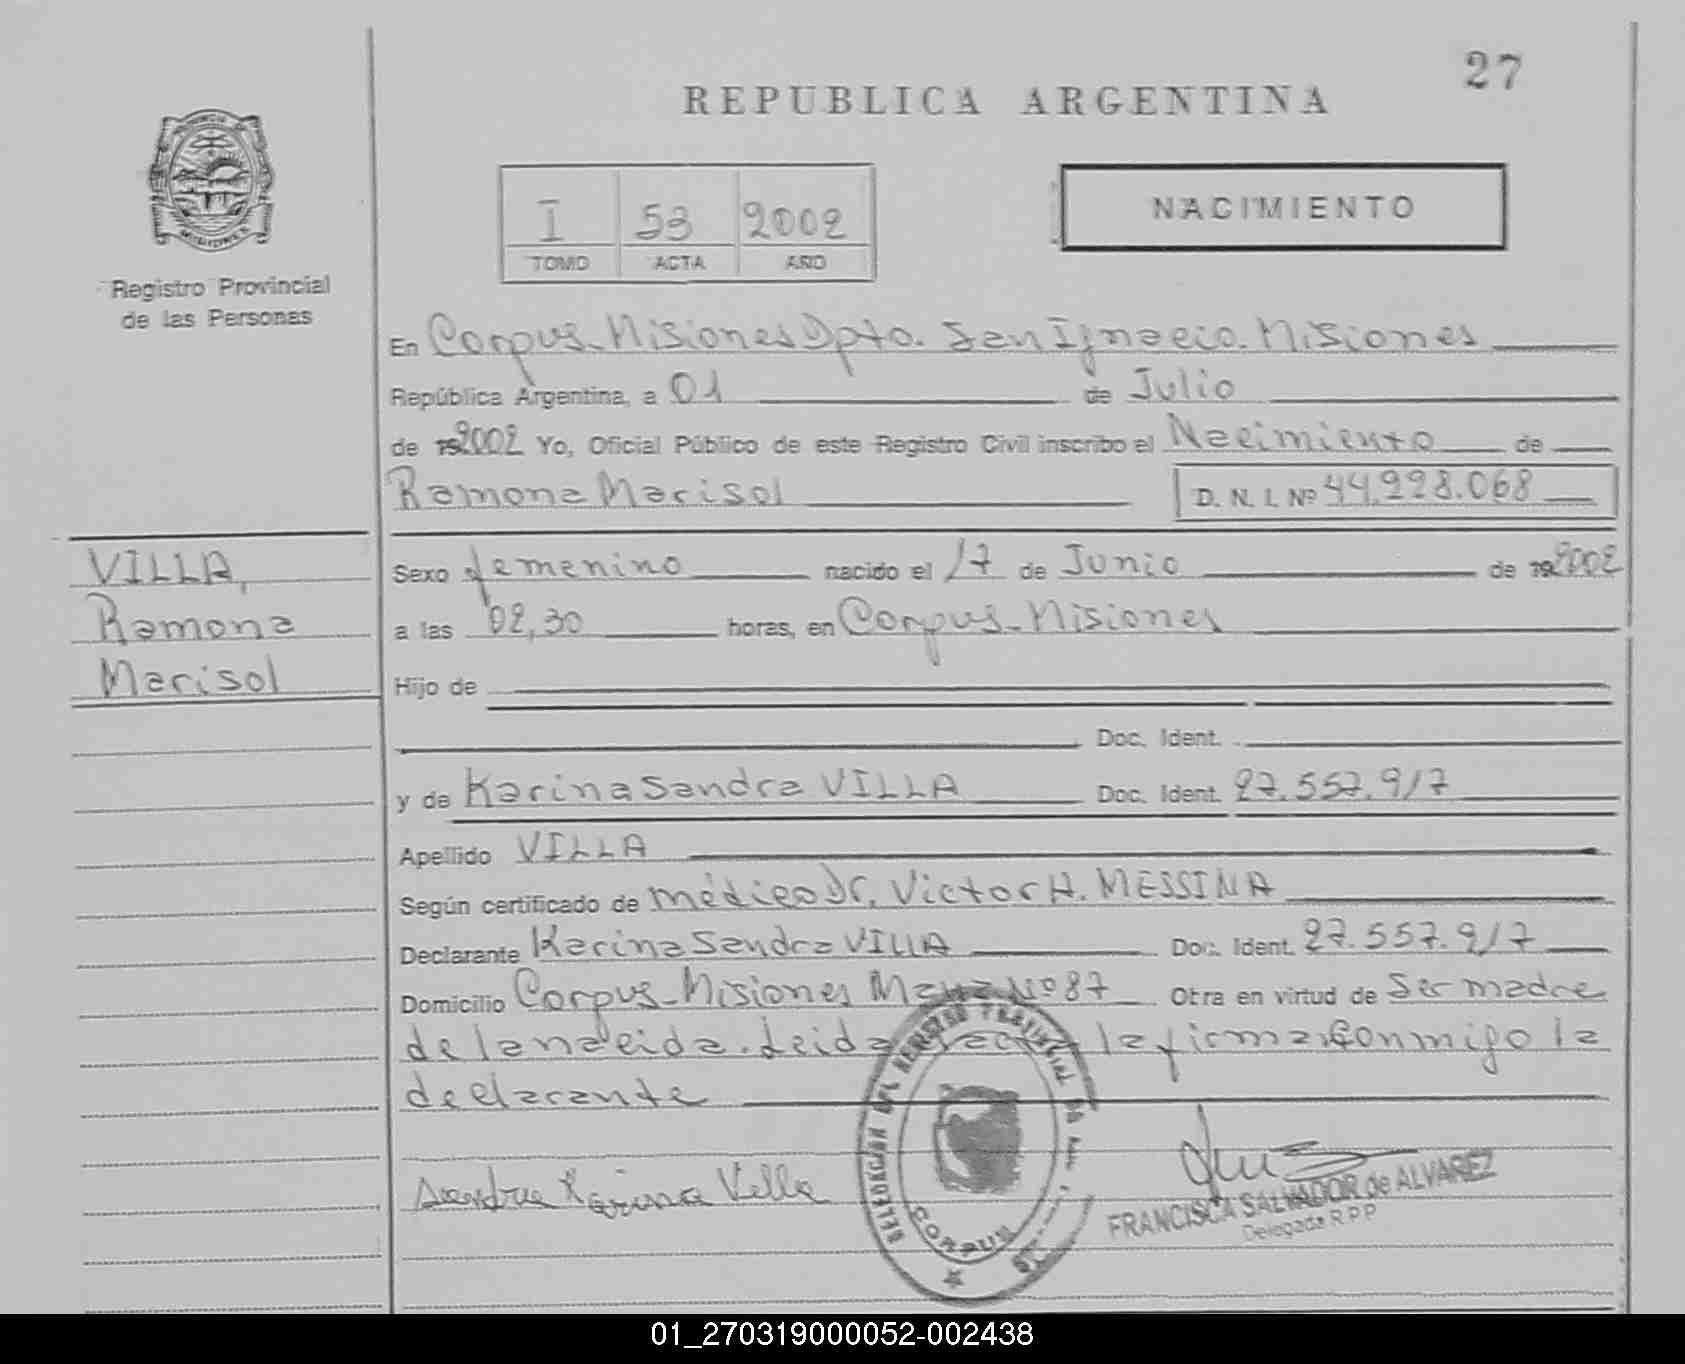 27
REPUBLICA ARGENTINA
NACIMIENTO
I 53 2002
TOMO ACTA AÑO
Registro Provincial
de las Personas
En Corpus-Misiones Dpto. San Ignacio. Misiones
República Argentina, a 01 de Julio
de 192002 Yo, Oficial Público de este Registro Civil inscribo el Nacimiento de
Ramona Marisol D. N. I. Nº 44.228.068
VILLA,
Ramona
Marisol
Sexo femenino nacido el 17 de Junio de 192002
a las 02,30 horas, en Corpus-Misiones
Hijo de
Doc. Ident.
y de Karina Sandra VILLA Doc. Ident. 27.557.917
Apellido VILLA
Según certificado de médico Dr. Victor H. MESSINA
Declarante Karina Sandra VILLA Doc. Ident. 27.557.917
Domicilio Corpus-Misiones Manz Nº 87 Otra en virtud de Ser madre
de la nacida. Leida la firma conmigo la
declarante
Sandra Karina Villa
DELEGACION DEL REGISTRO PROVINCIAL DE LAS
CORPUS
FRANCISCA SALVADOR de ALVAREZ
Delegada R.P.P
01_270319000052-002438